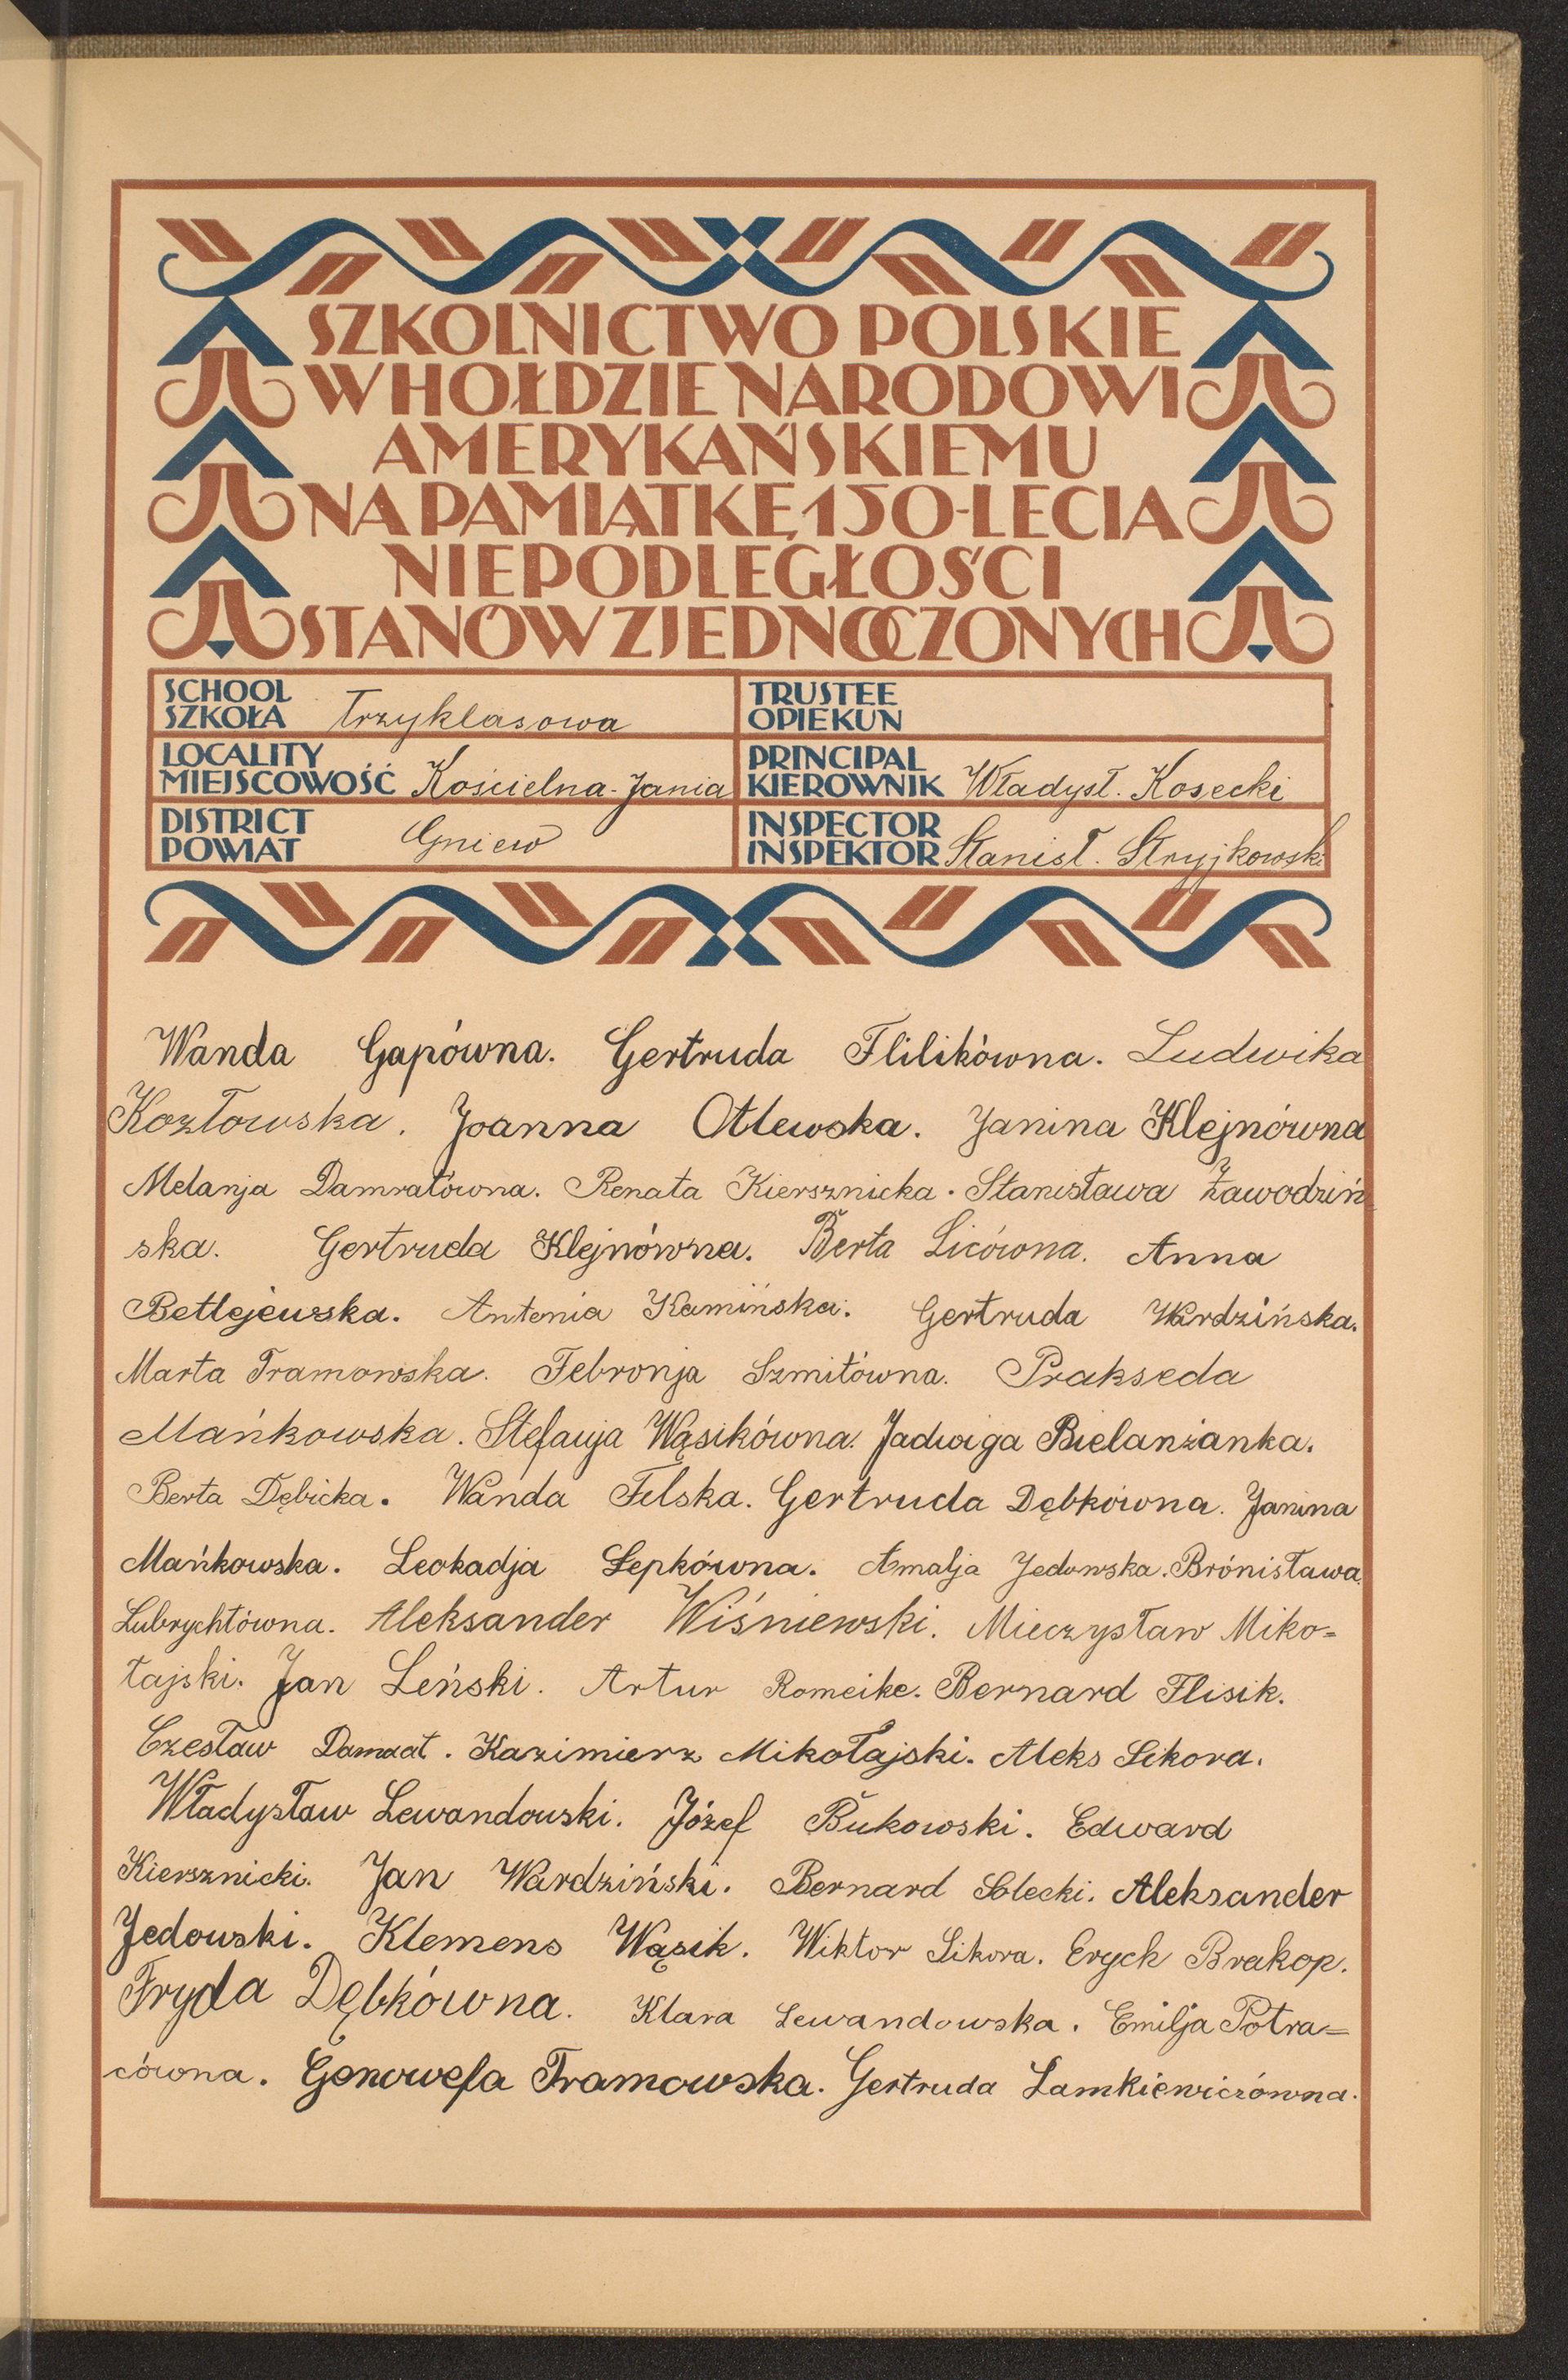 SZKOLNICTWO POLSKIE
W HOŁDZIE NARODOWI
AMERYKAŃSKIEMU
NA PAMIĄTKĘ 150-LECIA
NIEPODLEGŁOŚCI
STANÓW ZJEDNOCZONYCH
SCHOOL
SZKOŁA Trzyklasowa
TRUSTEE
OPIEKUN
LOCALITY
MIEJSCOWOŚĆ Kościelna-Jania
PRINCIPAL
KIEROWNIK Władysł. Kosecki
DISTRICT
POWIAT Gniew
INSPECTOR
INSPEKTOR Stanisł. Stryjkowski
Wanda Gapówna. Gertruda Flilikówna. Ludwika
Kozłowska. Joanna Otlewska. Janina Klejnówna
Melanja Damratówna. Renata Kiersznicka. Stanisława Zawodziń
ska. Gertruda Klejnówna. Berta Licówna. Anna
Betlejewska. Antonia Kamińska. Gertruda Wardzińska.
Marta Tramowska. Febronja Szmitówna. Prakseda
Mańkowska. Stefanja Wąsikówna. Jadwiga Bielanżanka.
Berta Dębicka. Wanda Felska. Gertruda Dębkówna. Janina
Mańkowska. Leokadja Lepkówna. Amalja Jedowska. Brónisława
Lubrychtówna. Aleksander Wiśniewski. Mieczysław Miko=
łajski. Jan Leński. Artur Romeike. Bernard Flisik.
Czesław Damrat. Kazimierz Mikołajski. Aleks Sikora.
Władysław Lewandowski. Józef Bukowski. Edward
Kiersznicki. Jan Wardziński. Bernard Solecki. Aleksander
Jedowski. Klemens Wąsik. Wiktor Sikora. Eryck Brakop.
Fryda Dębkówna. Klara Lewandowska. Emilja Potra=
cówna. Genowefa Tramowska. Gertruda Lamkiewiczówna.